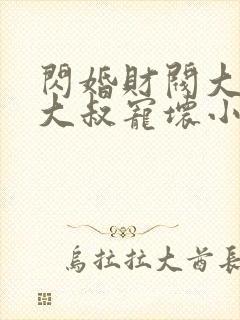 閃婚財閥大
大叔寵壞小
烏拉拉大酋長